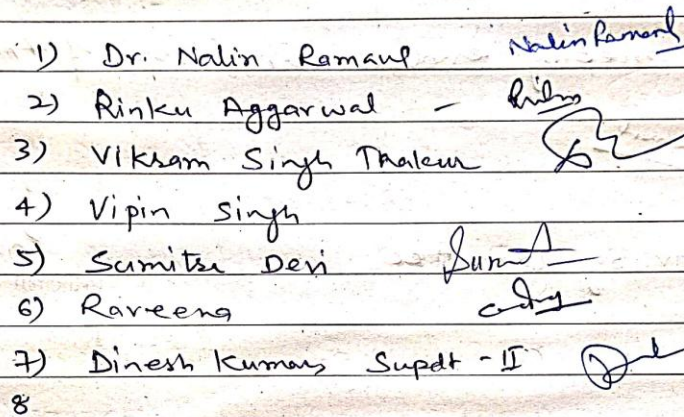 1) Dr. Nalin Ramaul Nalin Ramaul
2) Rinku Aggarwal -
3) Vikram Singh Thakur
4) Vipin Singh
5) Sumitra Devi
6) Raveena
7) Dinesh Kumar, Supdt - II
8